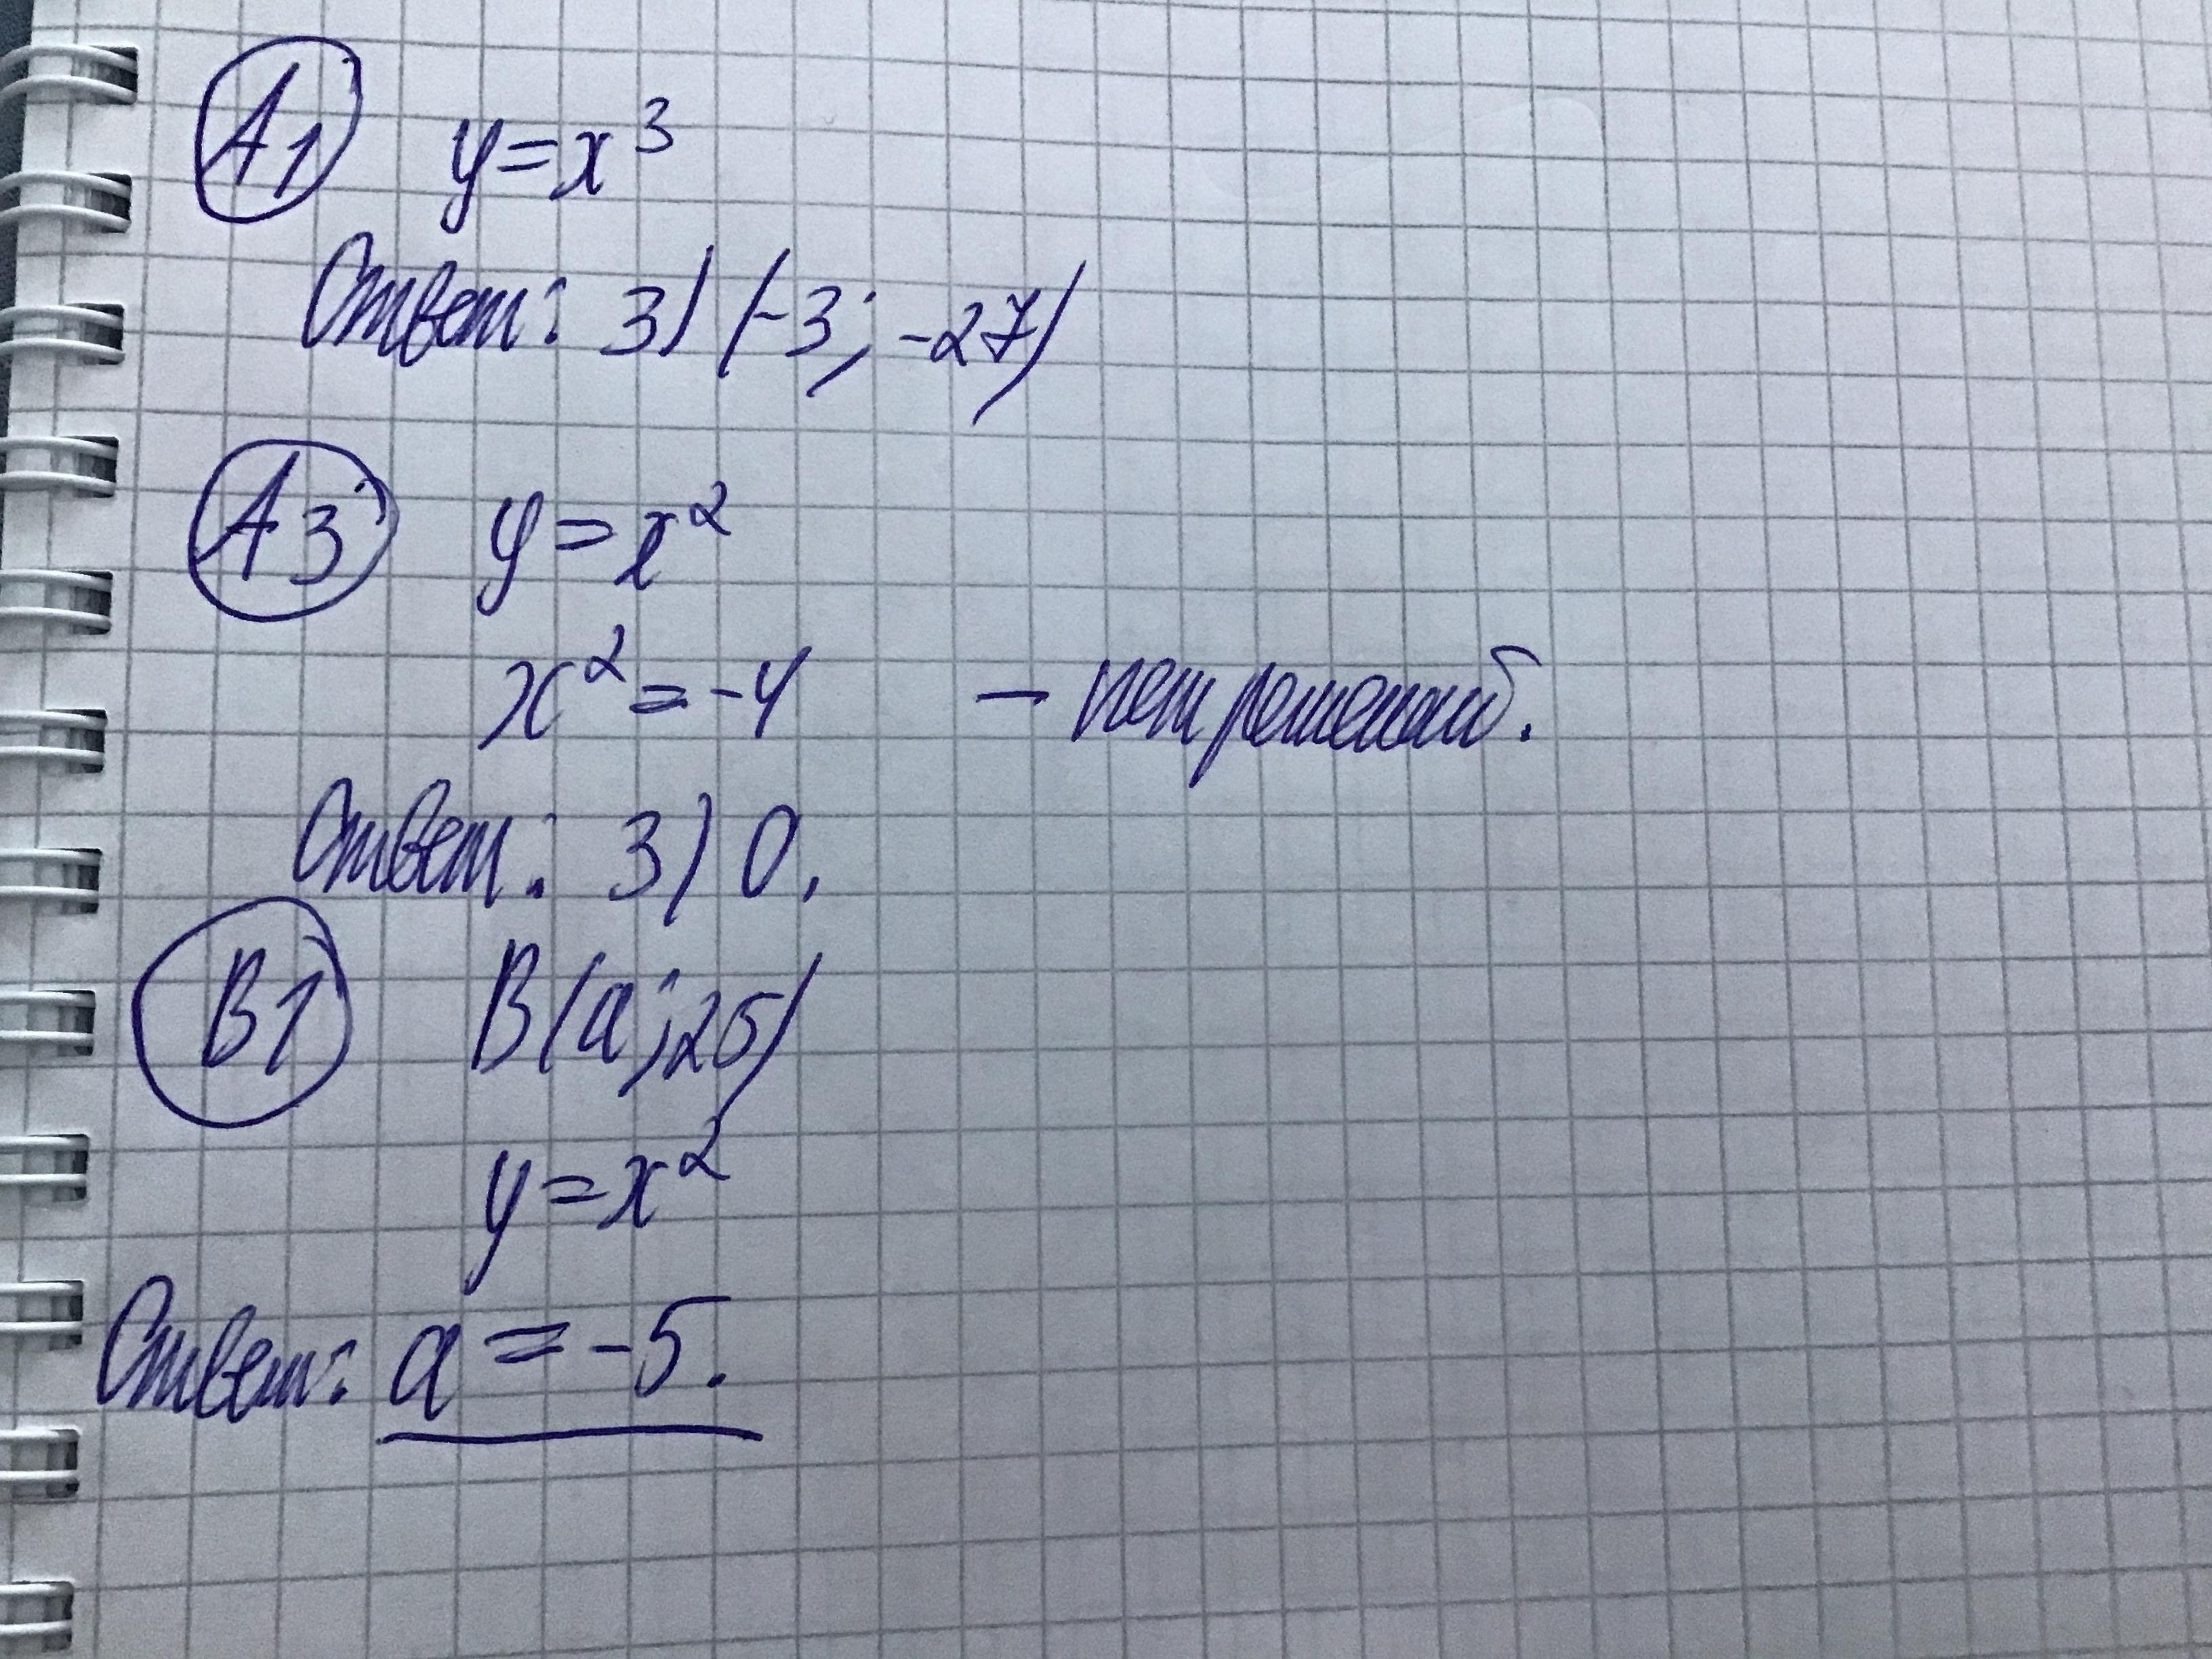 А1 y=x³
Ответ: 3) (-3; -27)
А3 y=x²
x²=-4 — нет решений.
Ответ: 3) 0.
В1 В(a; 25)
y=x²
Ответ: a=-5.